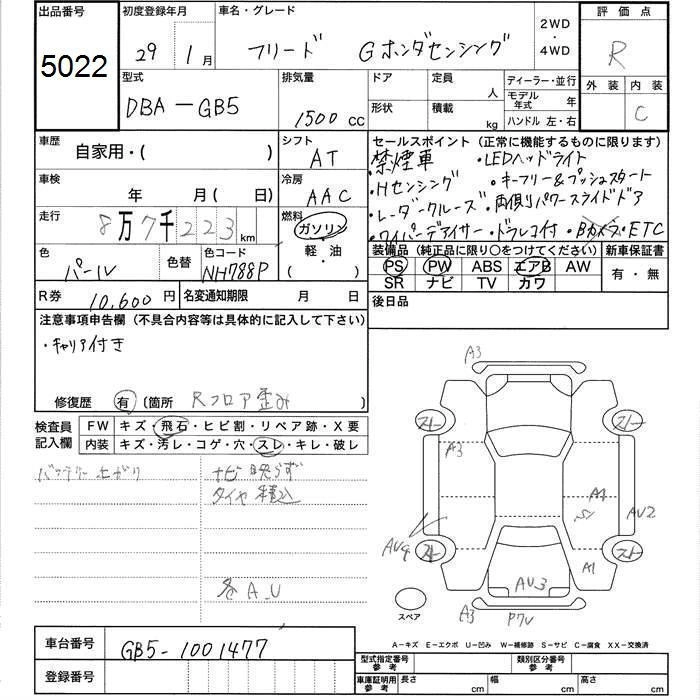 出品番号 初度登録年月 車名・グレード 2WD・4WD 評価点
5022 29年 1月 フリード Gホンダセンシング R
外装 内装
C
型式 排気量 ドア 定員 人 ディーラー・並行
DBA-GB5 1500cc 形状 積載 kg モデル年式 年
ハンドル 左・右
車歴 自家用・( ) シフト AT セールスポイント (正常に機能するものに限ります)
禁煙車 ・LEDヘッドライト
車検 年 月 ( 日) 冷房 AAC ・Hセンシング ・キーフリー&プッシュスタート
走行 8万7千223km 燃料 ガソリン・軽・油 ( ) ・レーダークルーズ ・両側パワースライドドア
・ワイパーデアイサー ・ドラレコ付 ・Bカメラ ・ETC
色 パール 色替 色コード NH788P
装備品 (純正品に限り〇をつけてください) 新車保証書
PS PW ABS エアB AW 有・無
SR ナビ TV カワ
R券 10,600円 名変通知期限 月 日 後日品
注意事項申告欄 (不具合内容等は具体的に記入して下さい)
・キャリア付き
修復歴 有 (箇所 Rフロア歪み
検査員記入欄 FW キズ・飛石・ヒビ割・リペア跡・X要
内装 キズ・汚レ・コゲ・穴・スレ・キレ・破レ
バッテリー上がり ナビ映らず
タイヤ積込
各A、U
A3
A3
A4
AU2
AU4
A1
AU3
A3
スペア
A-キズ E-エクボ U-凹み W-補修跡 S-サビ C-腐食 XX-交換済
車台番号 GB5-1001477
登録番号
型式指定番号 参考 類別区分番号 参考
車庫証明用 参考 長さ cm 幅 cm 高さ cm